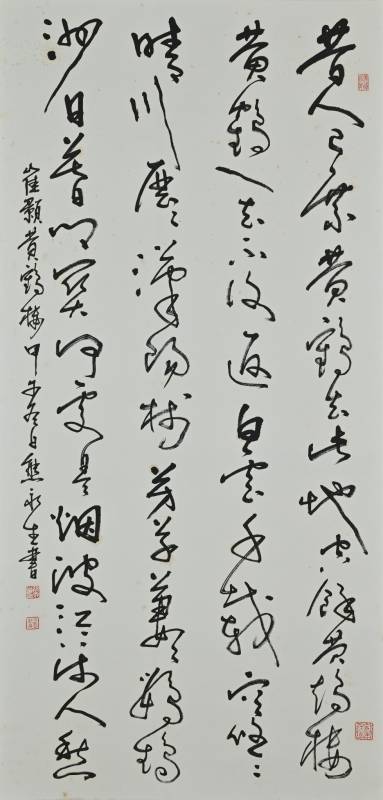 昔人已乘黃鶴去此地空餘黃鶴樓
黃鶴一去不復返白雲千載空悠々
晴川歷々漢陽樹芳草萋々鸚鵡
洲日暮鄉關何處是烟波江上使人愁
崔顥黃鶴樓甲午冬日熊永生書